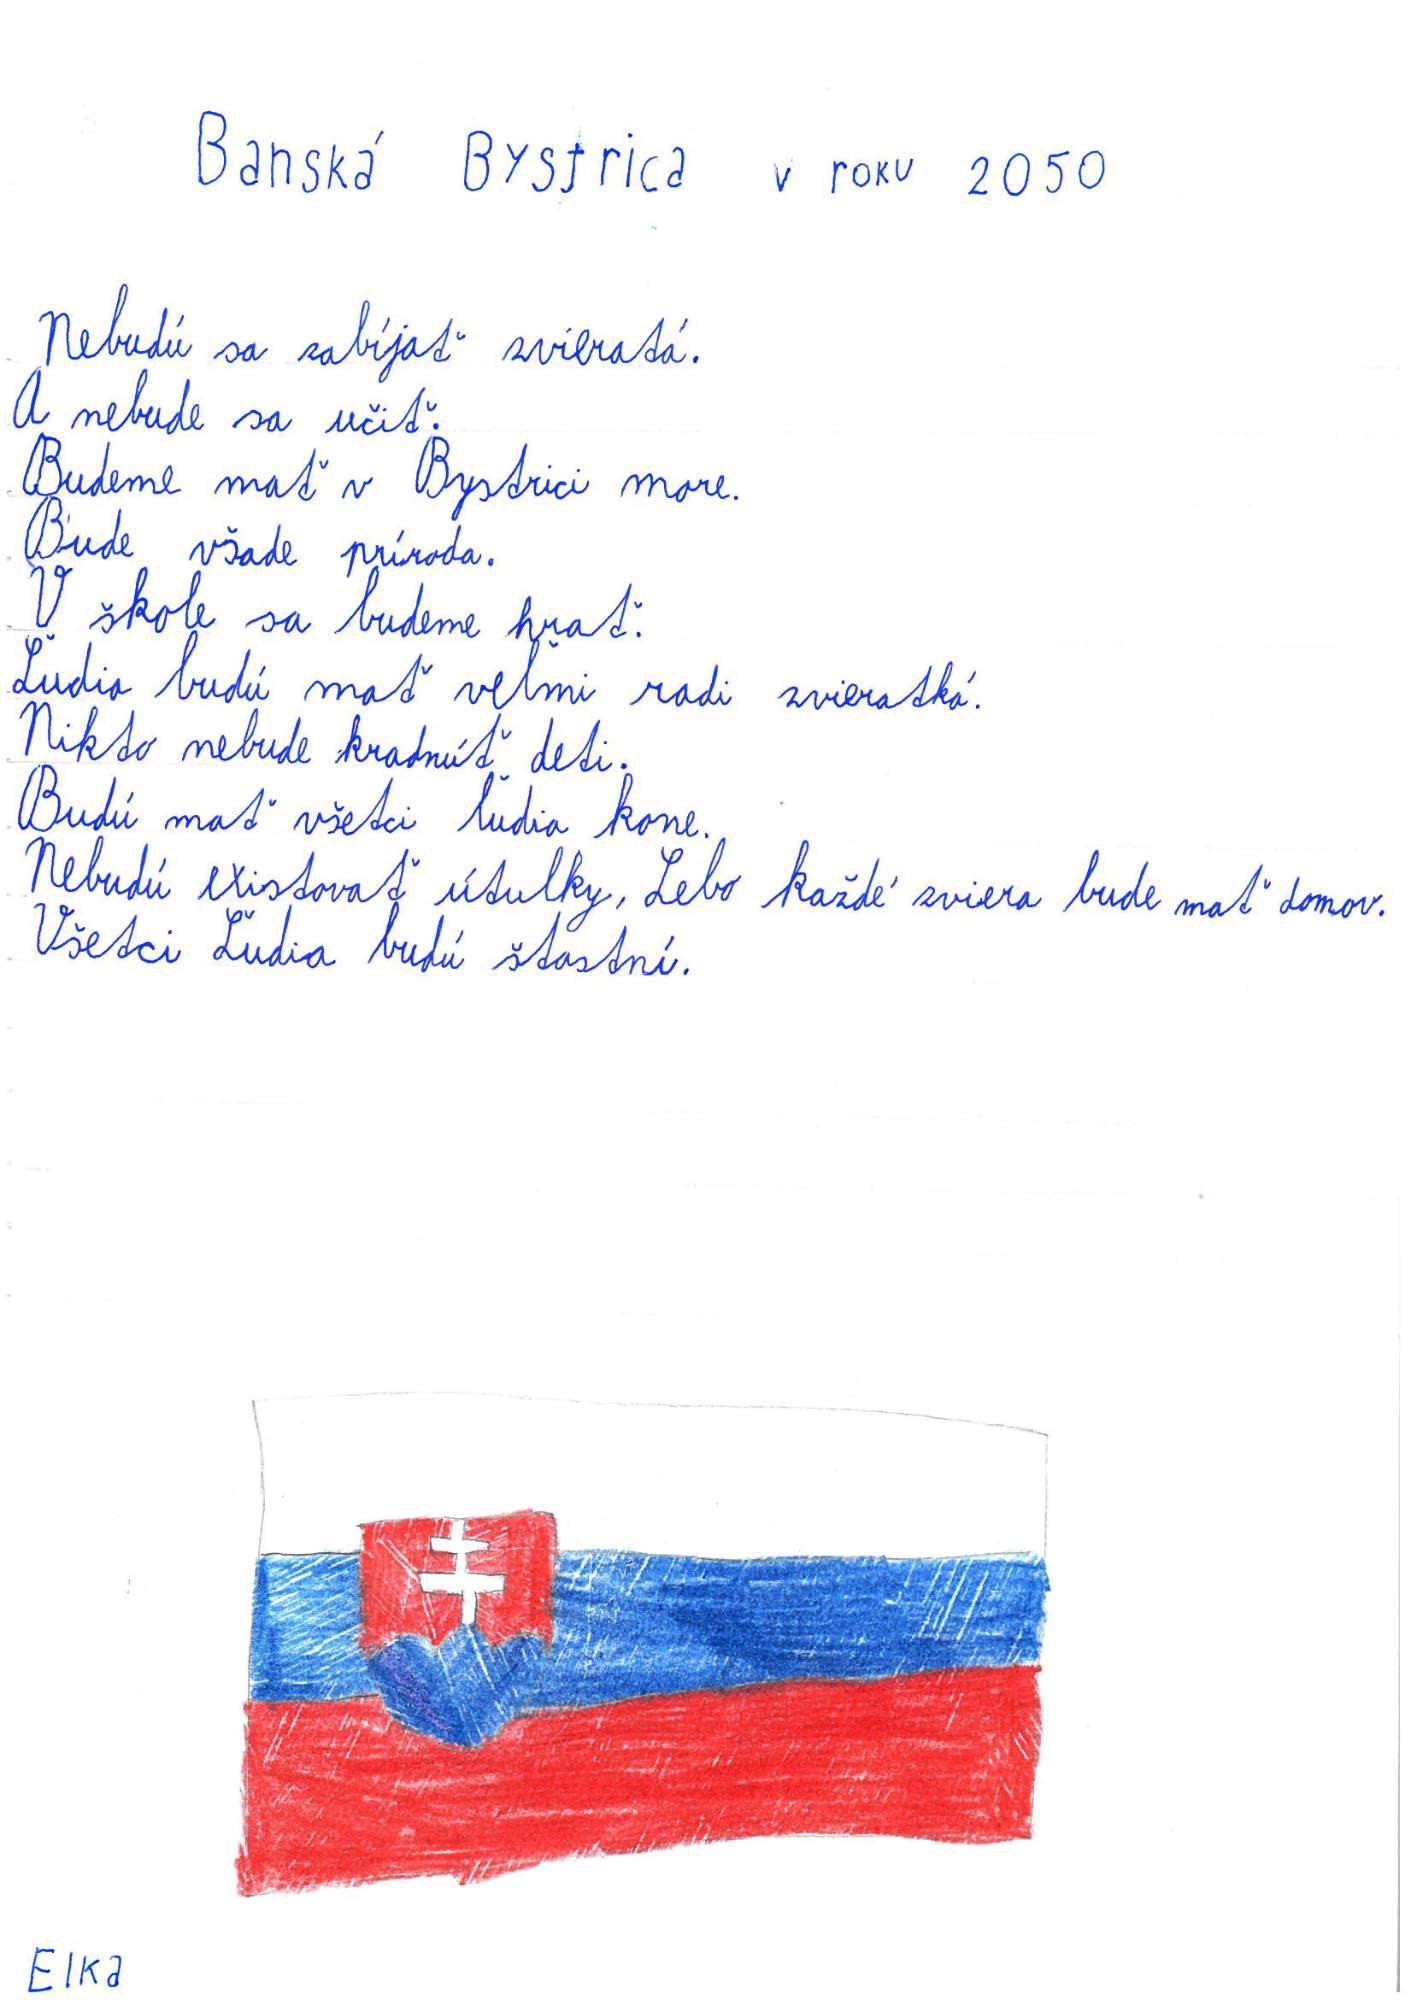 Banská Bystrica v roku 2050
Nebudú sa zabíjať zvieratá.
A nebude sa učiť.
Budeme mať v Bystrici more.
Bude všade príroda.
V škole sa budeme hrať.
Ľudia budú mať veľmi radi zvieratká.
Nikto nebude kradnúť deti.
Budú mať všetci ľudia kone.
Nebudú existovať útulky, Lebo každé zviera bude mať domov.
Všetci Ľudia budú štastní.
Elka